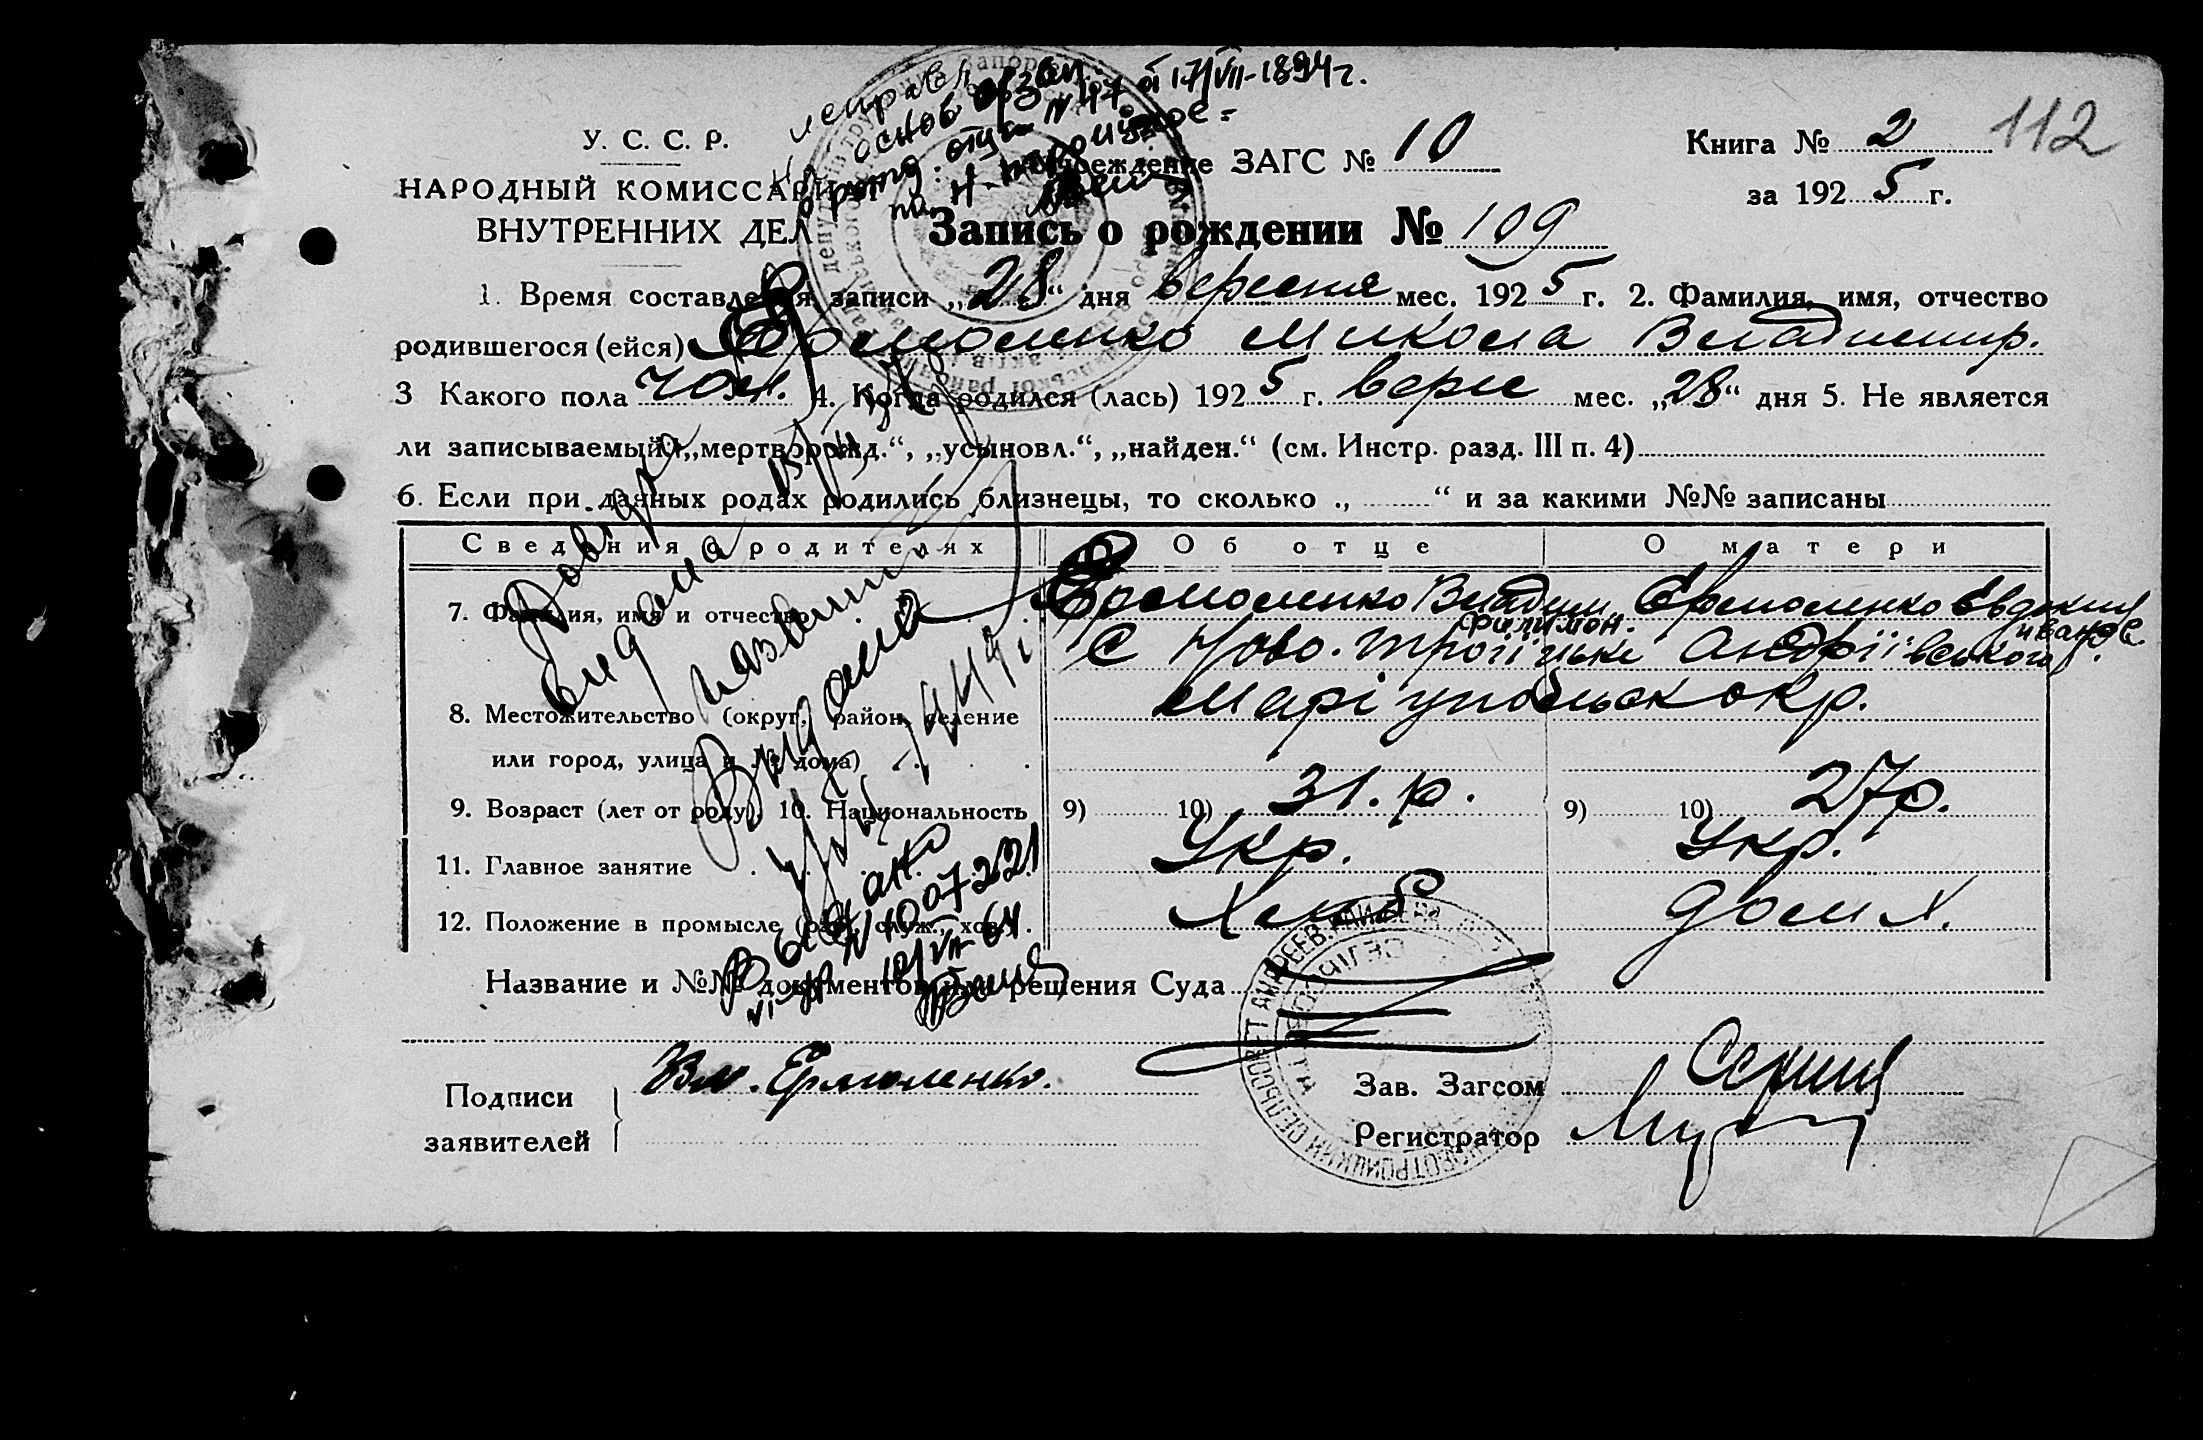 исправл
на основ. а/зап
о рожд. отца N 47 от 17/VII-1894г.
по Н-троицкое
У. С. С. Р.
НАРОДНЫЙ КОМИССАРИАТ
ВНУТРЕННИХ ДЕЛ
Учреждение ЗАГС № 10
Книга № 2
112
за 1925 г.
Запись о рождении № 109
1. Время составления записи „28“ дня вересня мес. 1925 г. 2. Фамилия, имя, отчество
родившегося (ейся) Ермоленко Микола Владимир.
3 Какого пола чол. 4. Когда родился (лась) 1925 г. верес мес. „28“ дня 5. Не является
ли записываемый: „мертворожд.“, „усыновл.“, „найден.“ (см. Инстр. разд. III п. 4)
6. Если при данных родах родились близнецы, то сколько „ “ и за какими №№ записаны
Сведения о родителях Об отце О матери
7. Фамилия, имя и отчество Ермоленко Владим Филимон. Ермоленко Евдокия Ивановн.
С Ново-Троїцьке Андріївського р.
8. Местожительство (округ, район, селение Маріупольск окр.
или город, улица и № дома)
9. Возраст (лет от роду), 10. Национальность 9) 10) 31. р. 9) 10) 27р.
11. Главное занятие Укр. Укр.
12. Положение в промысле (раб., служ., хоз.) Хліб дом х.
Название и №№ документов или решения Суда
Довідка
видана
Видана
1944г
Выдано
N 1007221
10/VII-64
Подписи
заявителей
Вл. Ермоленко.
Зав. Загсом
Регистратор